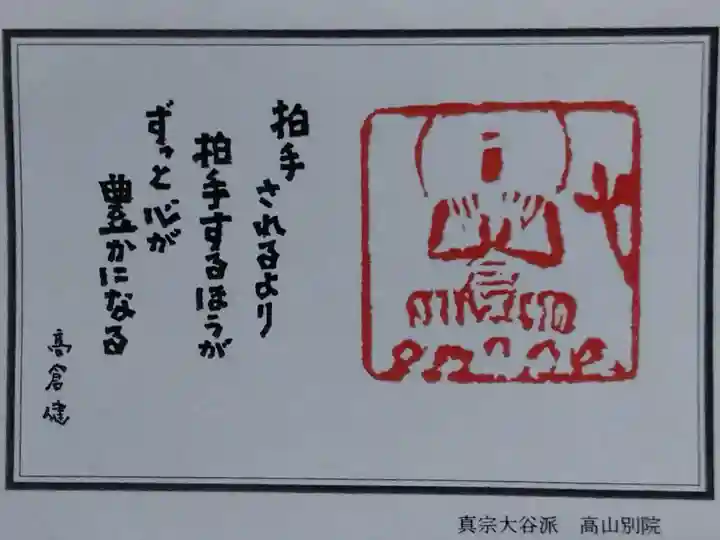 拍手されるより
拍手するほうが
ずっと心が
豊かになる
高倉健
真宗大谷派 高山別院